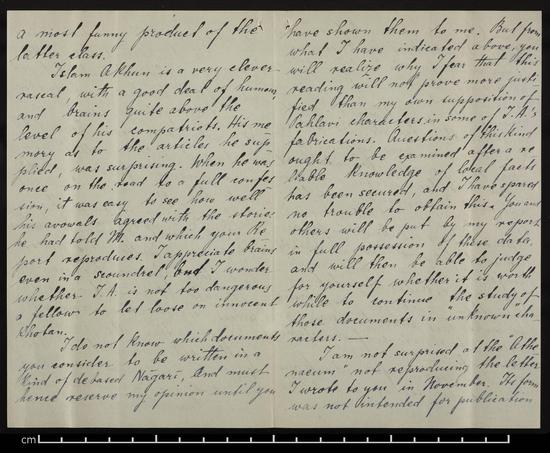 a most funny product of the
latter class.
Islam Akhun is a very clever
rascal, with a good deal of humour,
and brains quite above the
level of his compatriots. His me
mory as to the articles he sup
plied, was surprising. When he was
once on the road to a full confes
sion, it was easy to see how well
his avowals agreed with the stories
he had told M. and which your Re
port reproduces. I appreciate brains
even in a scoundrel, and I wonder
whether I.A. is not too dangerous
a fellow to let loose on innocent
Khotan.
I do not know which documents
you consider to be written in a
kind of debased Nagari, and must
hence reserve my opinion until you
have shown them to me. But from
what I have indicated above, you
will realize why I fear that this
reading will not prove more justi
fied than my own supposition of
Pahlavi characters in some of I.A.'s
fabrications. Questions of this kind
ought to be examined after a re
liable knowledge of local facts
has been secured, and I have spared
no trouble to obtain this. You and
others will be put by my report
in full possession of these data,
and will then be able to judge
for yourself whether it is worth
while to continue the study of
those documents in unknown cha
racters. —
I am not surprised at the "Athe
naeum" not reproducing the letter
I wrote to you in November. Its form
was not intended for publication
cm